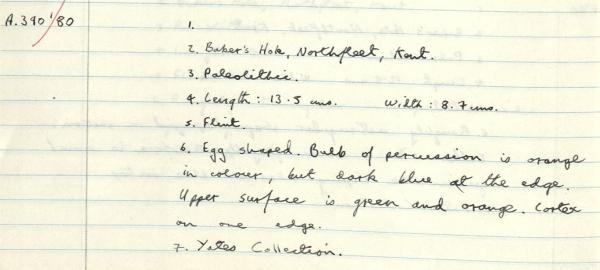 A.390'/80
1.
2. Baker's Hole, Northfleet, Kent.
3. Paleolithic.
4. Length: 13.5 cms. Width: 8.7 cms.
5. Flint.
6. Egg shaped. Bulb of percussion is orange
in colour, but dark blue at the edge.
Upper surface is green and orange. Cortex
on one edge.
7. Yates Collection.